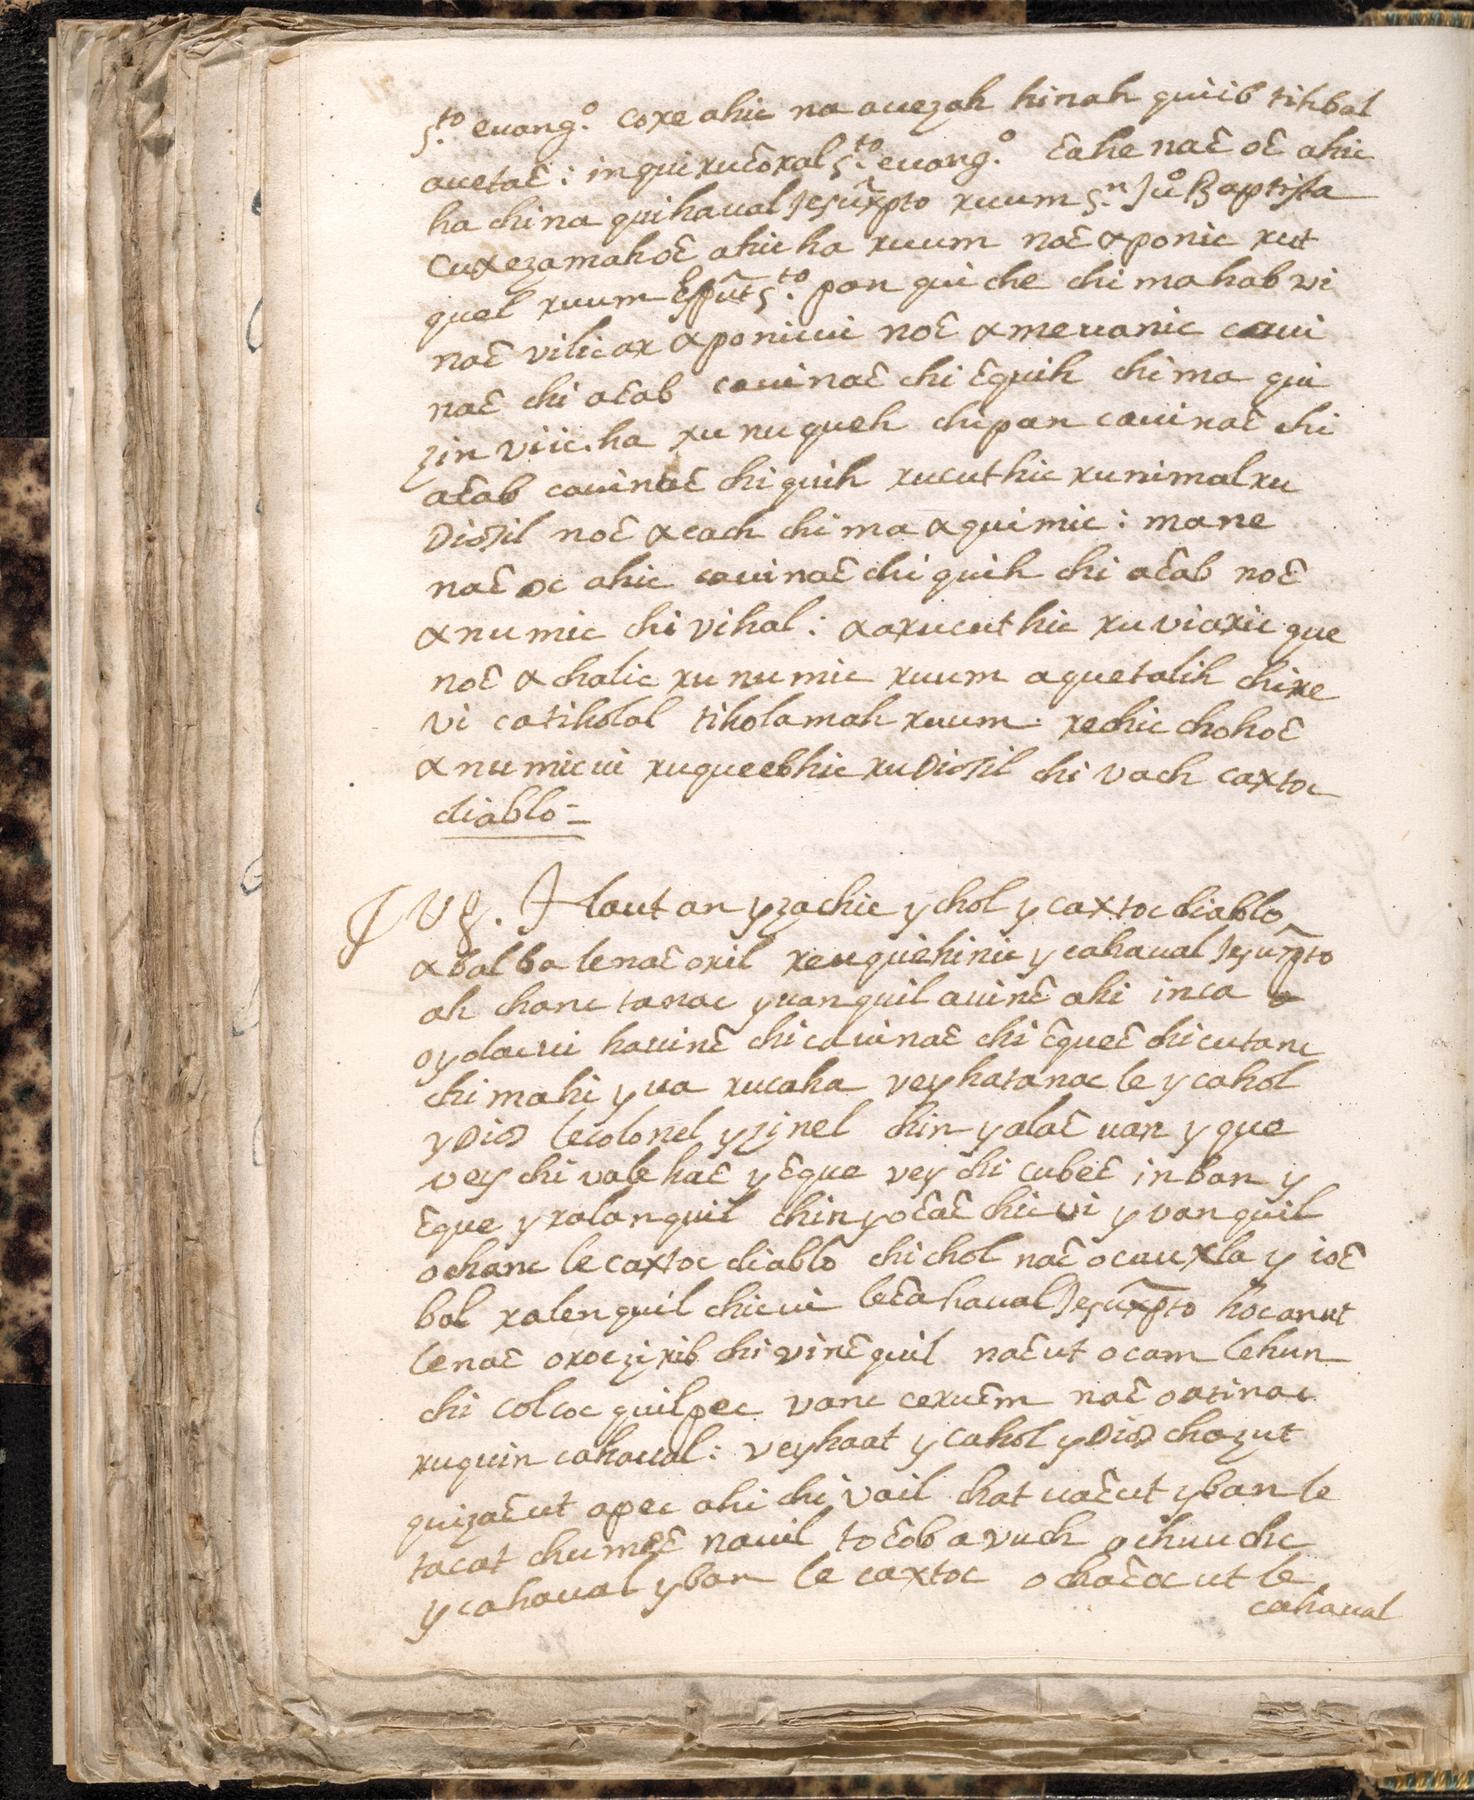 s.to euang.o coxe ahic na auezah hinah quiib tihbal
auetaꜫ : inquiruꜫoxal s.to euang.o ꜫahe naꜫ oꜫ ahic
ha china quihaual Jesuxp̃to ruum s.n Juo Baptista
cuxezamahoꜫ ahic ha ruum noꜫ xponic rut
quel ruum Espũ s.to pan quiche chi mahab vi
naꜫ vilicar xponicui noꜫ xmeuanic caui
naꜫ chi aꜫab cauinaꜫ chi ꜫquih chi ma qui
zin viic.ha ru nuqueh chipan cauinaꜫ chi
aꜫab cauinaꜫ chi quih rucuthic runimal ru
Diosil noꜫ xcach chi ma xquimic : mane
naꜫ oc ahic cauinaꜫ chi quih chi aꜫab noꜫ
xnumic chi vihal : xarucut hic ruviaxic que
noꜫ xchalic ru numic ruum aquetalih chire
vi catiholal tiholamah ruum. rechic chohoꜫ
xnumicui ruqueebhic ru Diosil chi vach caxtoc
diablo =
Uꜫ. Haut an yzachic ychol y caxtoc diablo
xbalba lenaꜫ oril reuquehinic y cahaual Jesuxp̃to
ah chanc tanac yuanquil auinꜫ ahi inca
oyolacui hauinꜫ chi cauinaꜫ chi ꜫqueꜫ chicutanc
chi mahi y ua rucaha veyhatanac le y cahol
y Dios lecolonel yzinel chin yalaꜫ uan y que
vey chi vale haꜫ y ꜫque vey chi cubeꜫ inban y
ꜫque y ralanquil chin yoꜫaꜫ chic vi y vanquil
ochanc le caxtoc diablo chichol naꜫ ocauxla y ioꜫ
bal ralenquil chicui leꜫahaual Jesuxp̃to hocanut
lenaꜫ oroczirib chi vinꜫquil naꜫut ocam lehun
chi colcoc quilpec vanc ceruꜫm naꜫ oatinac
ruquin cahaual : veyhaat y cahol y Dios chazut
quizaꜫut apec ahi chi vail chat uaꜫut yban le
tacat chumeꜫ nauil toꜫob a vuch ochuuchc
y cahaual yban le caxtoc ochaꜫc ut le
cahaual